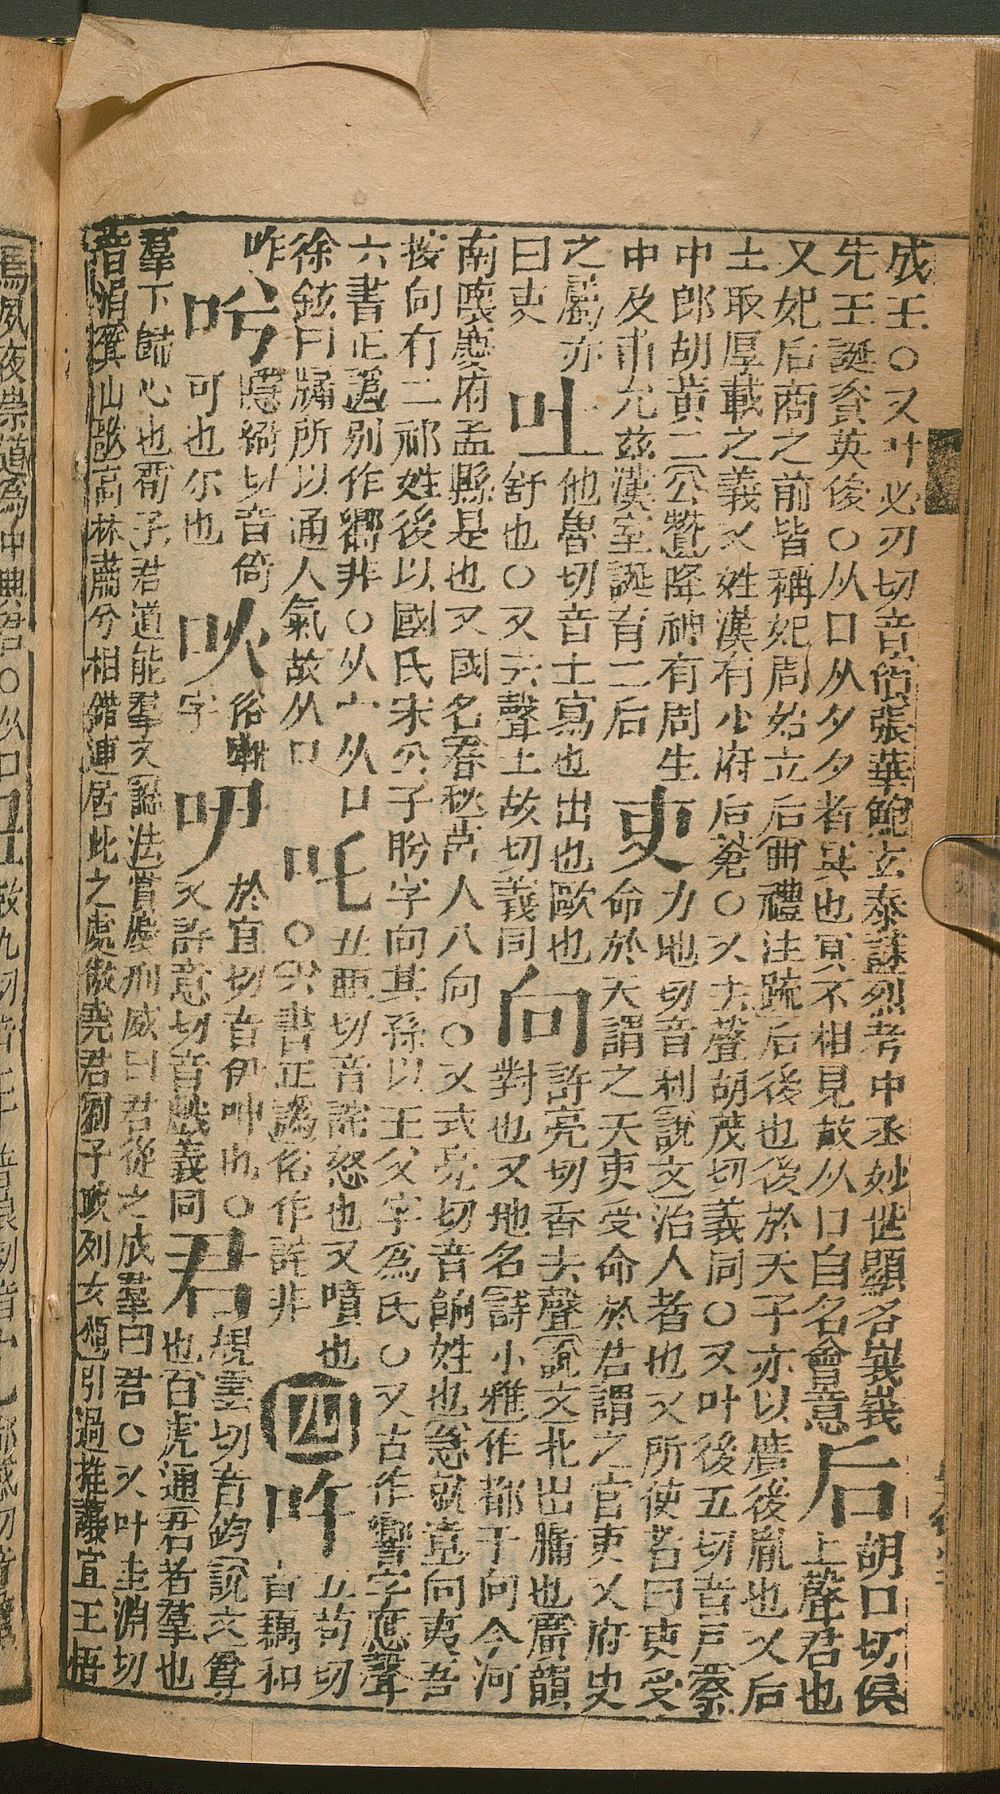 成王○又叶必刃切音儐張華鮑玄泰誄烈考中丞妙世顯名峩峩
先王誕資英俊○从口从夕夕者㝠也㝠不相見故从口自名會意
后
胡口切侯
上聲君也
又妃后商之前皆稱妃周始立后曲禮注䟽后後也後於天子亦以廣後胤也又后
土取厚載之義又姓漢有少府后蒼○又去聲胡茂切義同○又叶後五切音戸蔡
中郎胡黃二公贊降神有周生
中及甫允茲漢室誕育二后
吏
力地切音利說文治人者也又所使者曰吏受
命於天謂之天吏受命於君謂之官吏又府史
之屬亦
曰吏
吐
他魯切音土寫也出也歐也
舒也○又去聲土故切義同
向
許亮切香去聲說文北出牖也廣韻
對也又地名詩小雅作都于向今河
南懷慶府孟縣是也又國名春秋莒人入向○又式亮切音餉姓也急就章向夷吾
按向有二祁姓後以國氏宋公子肹字向其孫以王父字為氏○又古作響字應聲
六書正譌別作嚮非○从宀从口
徐鉉曰牖所以通人氣故从口
吒
丑亞切音詫怒也又噴也
○六書正譌俗作詫非
四
吽
五苟切
音藕和
咋
隱綺切音倚
可也尔也
俗
字
於宜切音伊呻也○
又許意切音戲義同
君
規雲切音鈞說文尊
也白虎通君者羣也
羣下歸心也荀子君道能羣又諡法賞慶刑威曰君從之成羣曰君○又叶圭淵切
音涓箕山歌高林肅兮相錯連居此之處傲堯君劉子政列女頌引過推讓宣王悟
焉夙夜崇道為中興君○从口